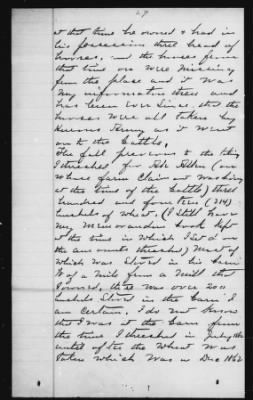 29
at that time he owned & had in
his possession three head of
horses, and the horses from
that time on were missing
from the place and it was
my information then and
has been ever since, that the
horses were all taken by
Army as it went
on to the battle.
The fall previous to the
I threshed for (on
whose farm Claim at Washing
at the time of the battle) three
hundred and fourteen (314)
bushels of wheat. (I still have
my Memorandum book kept
at the time in which I
the amounts threshed) Most of
which was stored in his barn
¼ of a mile from a mill that
I owned, there was over 200
bushels stored in the barn I
am certain. I do not know
that I was at the barn from
the time I threshed in
until after the wheat was
taken which was in Dec 1862